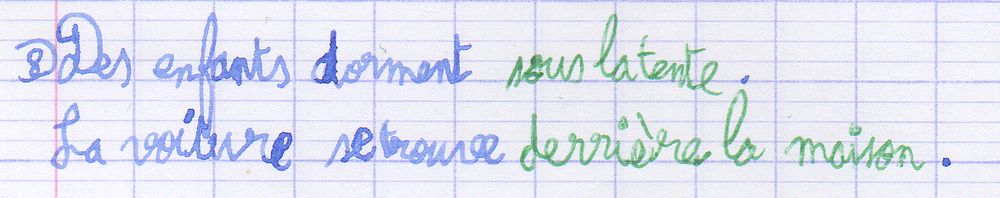 8) Des enfants dorment sous la tente.
La voiture se trouve derrière la maison.